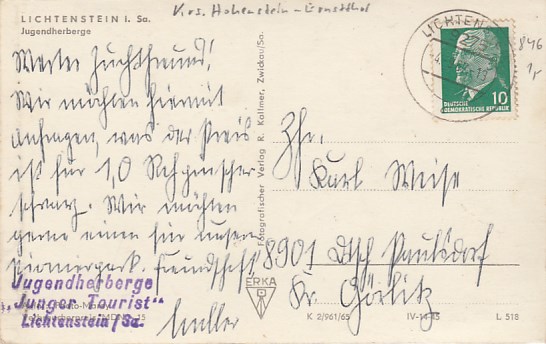 LICHTENSTEIN i. Sa.
Jugendherberge
Krs. Hohenstein-Ernstthal
LICHTENS
846
10
DEUTSCHE
DEMOKRATISCHE REPUBLIK
Werter Zuchtfreund!
Wir möchten hiermit
anfragen, was der Preis
ist für 1,0 Rehpinscher
schwarz. Wir möchten
gerne einen für unseren
Pionierpark. Freundschaft
Jugendherberge
„Junger Tourist"
Lichtenstein/Sa.
Fotografischer Verlag R. Kallmer, Zwickau/Sa.
Zhr.
Karl Weise
8901 Dtsch Paulsdorf
Kr. Görlitz
ERKA
K 2/961/65 IV-14-45 L 518